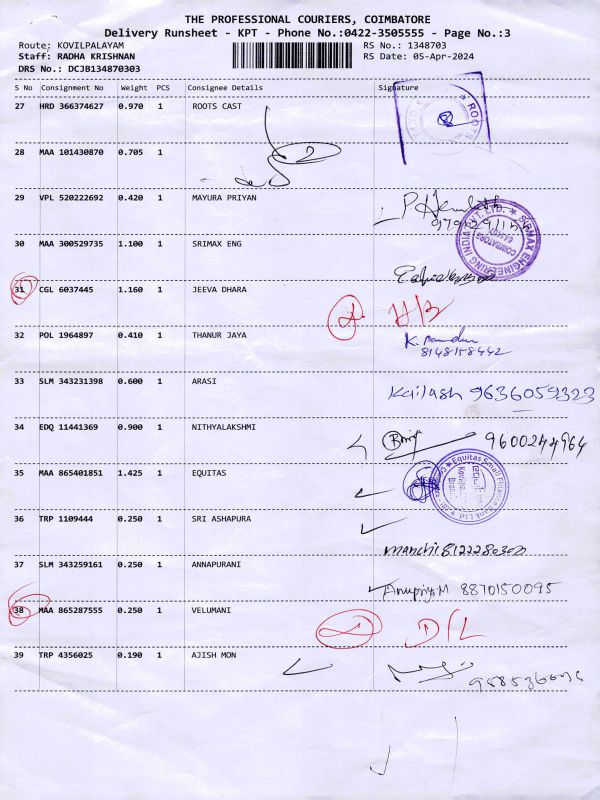 THE PROFESSIONAL COURIERS, COIMBATORE
Delivery Runsheet - KPT - Phone No.:0422-3505555 - Page No.:3
Route: KOVILPALAYAM RS No.: 1348703
Staff: RADHA KRISHNAN RS Date: 05-Apr-2024
DRS No.: DCJB134870303
S No Consignment No Weight PCS Consignee Details Signature
27 HRD 366374627 0.970 1 ROOTS CAST
ROOTS
28 MAA 101430870 0.705 1
29 VPL 520222692 0.420 1 MAYURA PRIYAN
30 MAA 300529735 1.100 1 SRIMAX ENG
SRIMAX ENGINEERING INDIA PVT. LTD.
COIMBATORE
31 CGL 6037445 1.160 1 JEEVA DHARA
H/B
32 POL 1964897 0.410 1 THANUR JAYA
8148158442
33 SLM 343231398 0.600 1 ARASI
Kailash 9636059323
34 EDQ 11441369 0.900 1 NITHYALAKSHMI
9600244964
35 MAA 865401851 1.425 1 EQUITAS
Equitas Small Finance Bank Ltd
36 TRP 1109444 0.250 1 SRI ASHAPURA
37 SLM 343259161 0.250 1 ANNAPURANI
Anupriya.M 8870150095
38 MAA 865287555 0.250 1 VELUMANI
D/L
39 TRP 4356025 0.190 1 AJISH MON